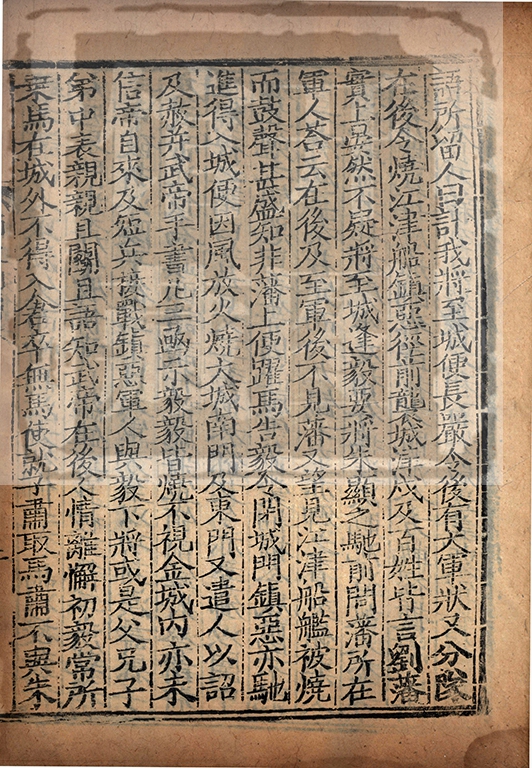 語所留人曰計我將至城便長嚴令後有大軍狀又分隊
在後令燒江津船鎮惡徑前襲城津戍及百姓皆言劉藩
實上晏然不疑將至城逢毅要將朱顯之馳前問藩所在
軍人荅云在後及至軍後不見藩又望見江津船艦被燒
而鼓聲甚盛知非藩上便躍馬告毅令閉城門鎮惡亦馳
進得入城便因風放火燒大城南門及東門又遣人以詔
及赦并武帝手書凡三函示毅毅皆燒不視金城內亦未
信帝自來及短兵接戰鎮惡軍人與毅下將或是父兄子
弟中表親親且鬬且語知武帝在後人情離懈初毅常所
乗馬在城外不得入倉卒無馬使就子肅取馬肅不與朱